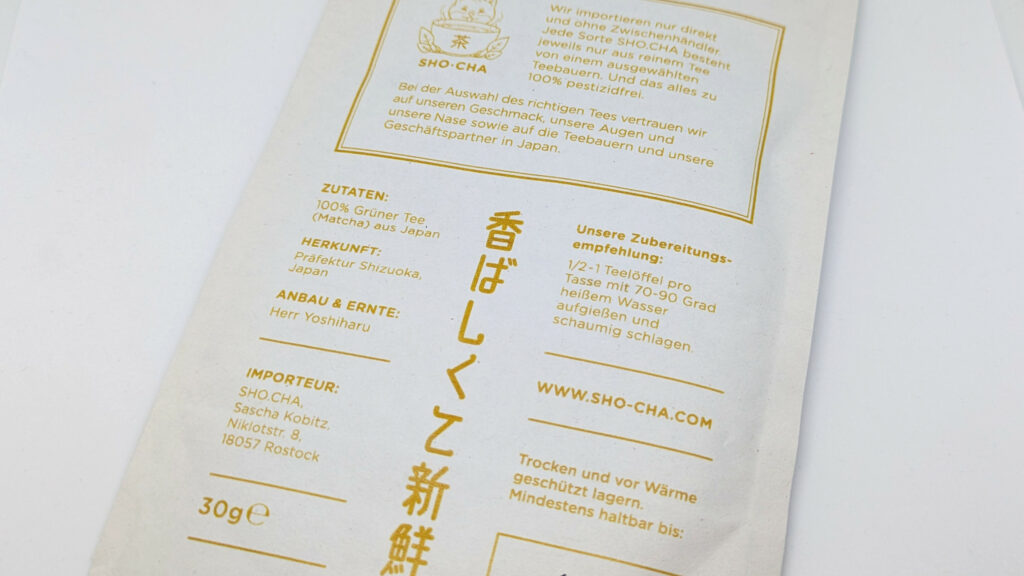 茶
SHO·CHA
Wir importieren nur direkt
und ohne Zwischenhändler.
Jede Sorte SHO.CHA besteht
jeweils nur aus reinem Tee
von einem ausgewählten
Teebauern. Und das alles zu
100% pestizidfrei.
Bei der Auswahl des richtigen Tees vertrauen wir
auf unseren Geschmack, unsere Augen und
unsere Nase sowie auf die Teebauern und unsere
Geschäftspartner in Japan.
ZUTATEN:
100% Grüner Tee
(Matcha) aus Japan
HERKUNFT:
Präfektur Shizuoka,
Japan
ANBAU & ERNTE:
Herr Yoshiharu
IMPORTEUR:
SHO.CHA,
Sascha Kobitz,
Niklotstr. 8,
18057 Rostock
30g℮
香ばしくて新鮮
Unsere Zubereitungs-
empfehlung:
1/2-1 Teelöffel pro
Tasse mit 70-90 Grad
heißem Wasser
aufgießen und
schaumig schlagen.
WWW.SHO-CHA.COM
Trocken und vor Wärme
geschützt lagern.
Mindestens haltbar bis: